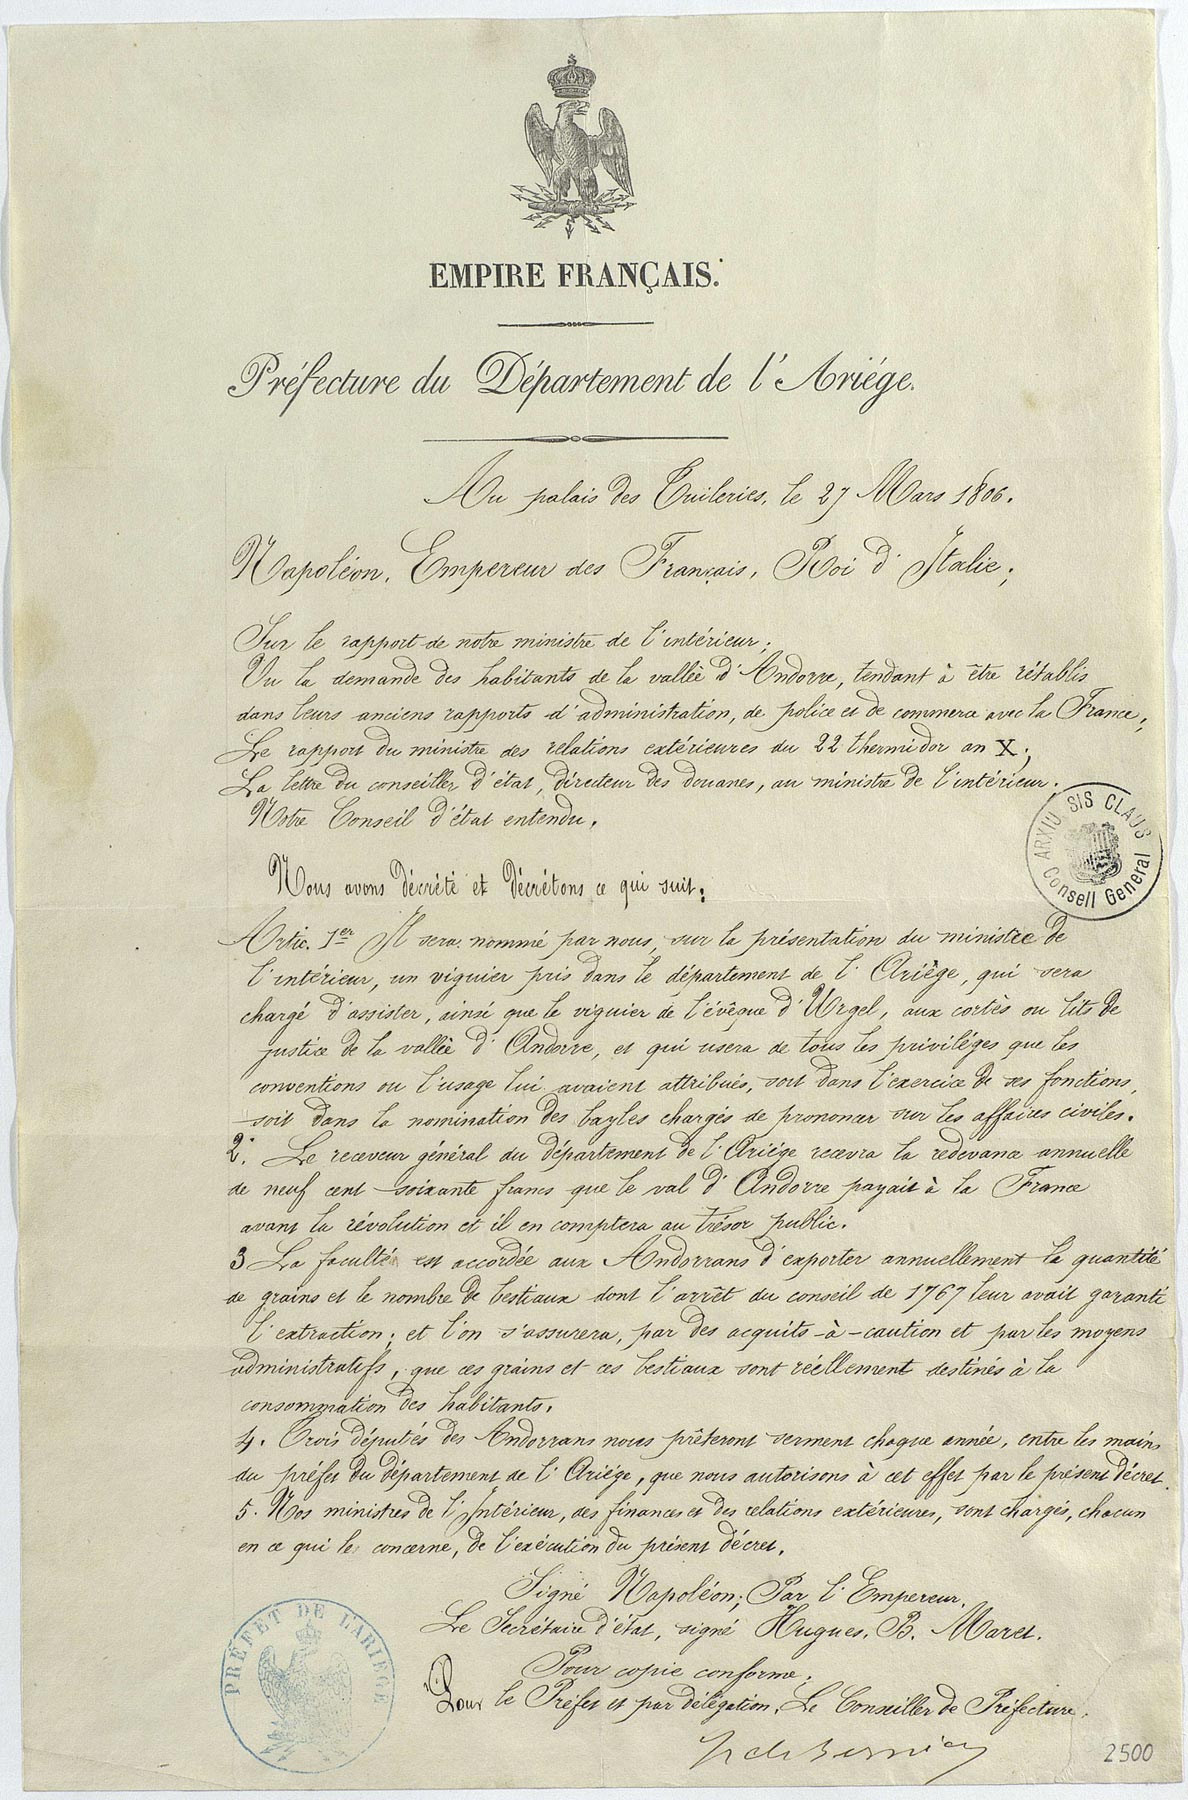 EMPIRE FRANÇAIS.
Préfecture du Département de l'Ariége.
Au palais des Tuileries, le 27 Mars 1806.
Napoléon, Empereur des Français, Roi d'Italie;
Sur le rapport de notre ministre de l'intérieur;
Vu la demande des habitants de la vallée d'Andorre, tendant à être rétablis
dans leurs anciens rapports d'administration, de police et de commerce avec la France;
Le rapport du ministre des relations extérieures du 22 thermidor an X;
La lettre du conseiller d'état, directeur des douanes, au ministre de l'intérieur.
Notre Conseil d'état entendu,
Nous avons décrété et décrétons ce qui suit:
Artic. 1er Il sera nommé par nous, sur la présentation du ministre de
l'intérieur, un viguier pris dans le département de l'Ariège, qui sera
chargé d'assister, ainsi que le viguier de l'évêque d'Urgel, aux cortès ou lits de
justice de la vallée d'Andorre, et qui usera de tous les priviléges que les
conventions ou l'usage lui avaient attribués, soit dans l'exercice de ses fonctions,
soit dans la nomination des bayles chargés de prononcer sur les affaires civiles.
2. Le receveur général du département de l'Ariége recevra la redevance annuelle
de neuf cent soixante francs que le val d'Andorre payait à la France
avant la révolution et il en comptera au trésor public.
3 La faculté est accordée aux Andorrans d'exporter annuellement la quantité
de grains et le nombre de bestiaux dont l'arrêt du conseil de 1767 leur avait garanti
l'extraction; et l'on s'assurera, par des acquits-à-caution et par les moyens
administratifs, que ces grains et ces bestiaux sont réellement destinés à la
consommation des habitants.
4. Trois députés des Andorrans nous prêteront serment chaque année, entre les mains
du préfet du département de l'Ariége, que nous autorisons à cet effet par le présent décret.
5. Nos ministres de l'Intérieur, des finances et des relations extérieures, sont chargés, chacun
en ce qui le concerne, de l'exécution du présent décret.
Signé Napoléon; Par l'Empereur,
Le Secrétaire d'état, signé Hugues, B. Maret.
Pour copie conforme;
Pour le Préfet et par délégation, Le Conseiller de Préfecture,
ARXIU SIS CLAUS
Consell General
PRÉFET DE L'ARIÈGE
2500